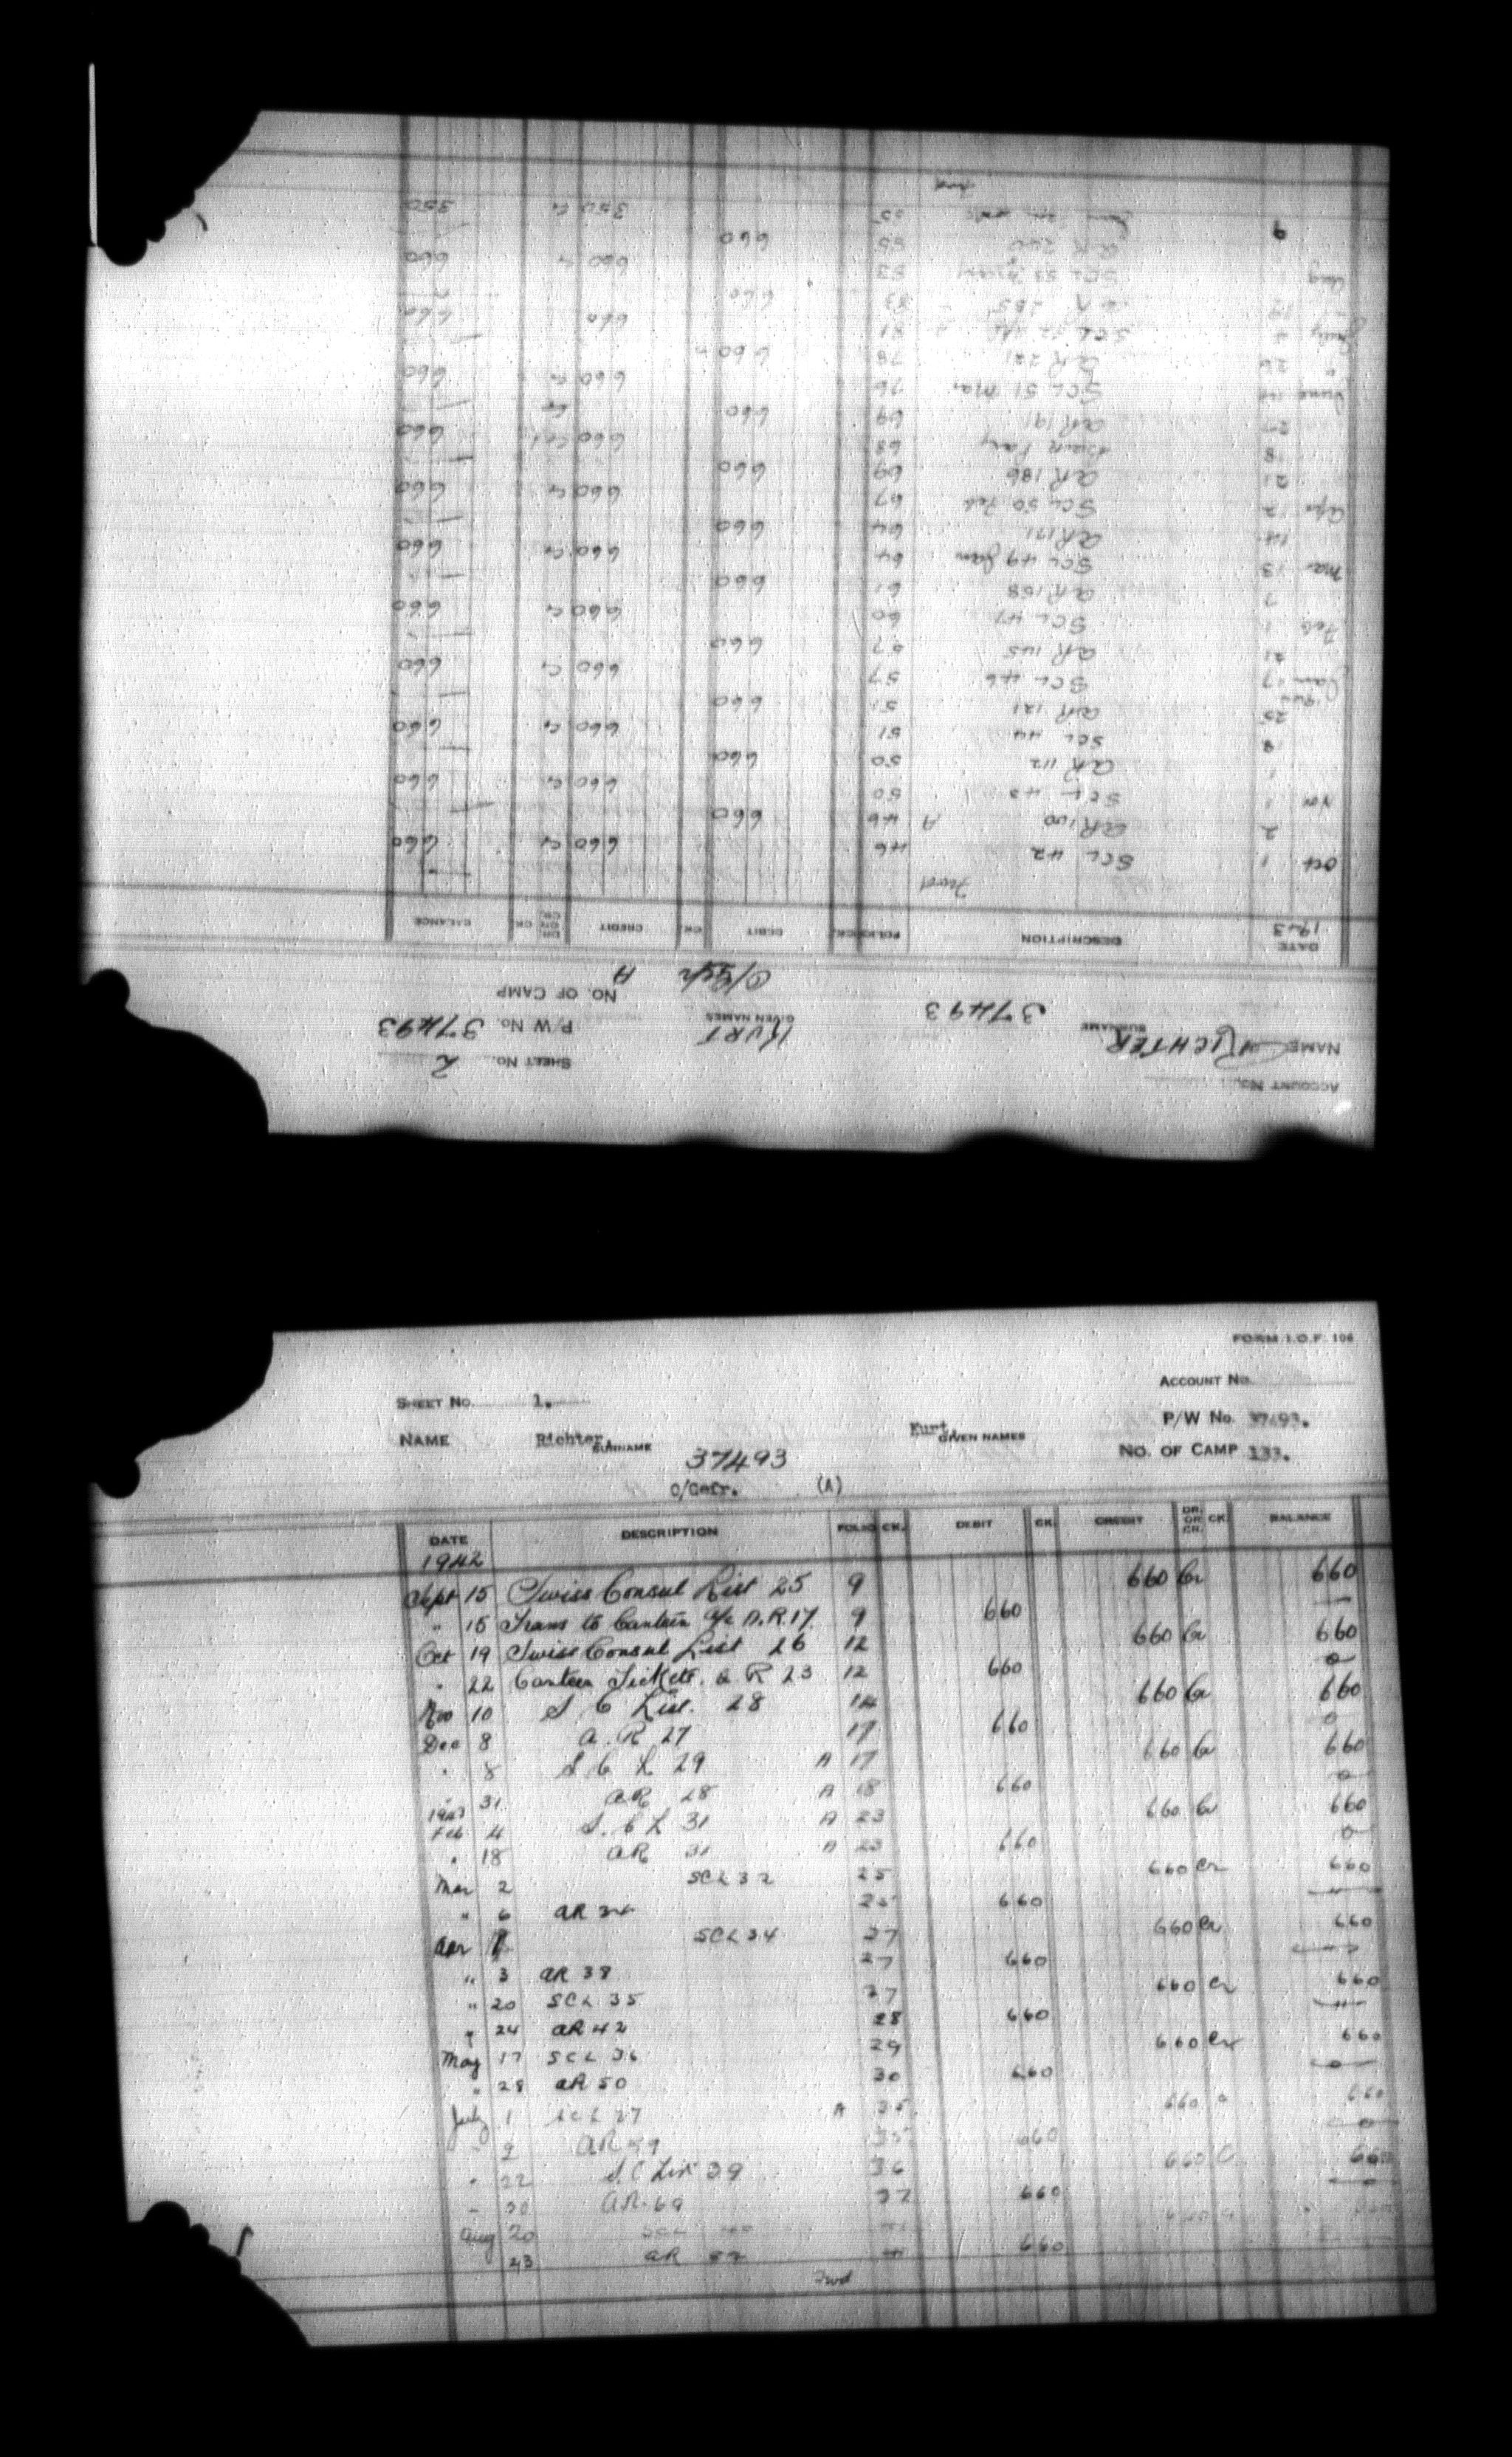 FORM I.O.F. 104
SHEET No. 1. ACCOUNT No.
P/W No. 37493.
NAME Richter, SURNAME Kurt, GIVEN NAMES
37493 NO. OF CAMP 133.
O/Gefr. (A)
DATE DESCRIPTION FOLIO CK. DEBIT CK. CREDIT DR. OR CR. CK. BALANCE
1942
Sept 15 Swiss Consul List 25 9 660 Cr 660
" 15 Trans to Canteen a/c A.R. 17 9 660 —
Oct 19 Swiss Consul List 26 12 660 Cr 660
" 22 Canteen Tickets. A R 23 12 660 0
Nov 10 S C List. 28 14 660 Cr 660
Dec 8 A. R 27 17 660 0
" 8 S C L 29 A 17 660 Cr 660
" 31 AR 28 A 18 660 0
1943
Feb 4 S. C L 31 A 23 660 Cr 660
" 18 AR 31 A 23 660 0
Mar 2 SCL 32 25 660 Cr 660
" 6 AR 25 660 —
Apr 1 SCL 34 27 660 Cr 660
" 3 AR 38 27 660
" 20 SCL 35 27 660 Cr 660
" 24 AR 42 28 660
May 17 SCL 36 29 660 Cr 660
" 28 AR 50 30 660 0
July 1 SCL 37 A 35 660 660
" 2 AR 59 35 660 0
" 22 S.C List 39 36 660 C 660
" 30 AR 69 37 660 0
Aug 20 SCL
23 AR 660
Fwd
ACCOUNT No. SHEET No. 2
NAME RICHTER SURNAME 37493 KURT GIVEN NAMES P/W No. 37493
O/Gefr A NO. OF CAMP
DATE DESCRIPTION FOLIO CK. DEBIT CK. CREDIT DR. OR CR. CK. BALANCE
1943
Fwd —
Oct 1 SCL 42 46 660 Cr 660
2 AR 100 A 46 660 —
Nov 1 SCL 43 50 660 Cr 660
1 AR 112 50 660 —
18 SCL 44 51 660 Cr 660
25 AR 121 51 660 —
Jan 17 SCL 46 57 660 Cr 660
21 AR 145 57 660 —
Feb 1 SCL 47 60 660 Cr 660
7 AR 158 61 660 —
Mar 13 SCL 49 Jan 64 660 Cr 660
14 AR 171 64 660 —
Apr 12 SCL 50 Feb 67 660 Cr 660
21 AR 186 69 660 —
18 Pay 68 660 Cr 660
AR 191 69 660 —
June 14 SCL 51 Mar 76 660 Cr 660
" 26 AR 221 78 660
July SCL 52 81 660 660
AR 83 660
Aug SCL 53 83 660 660
9 AR 260 85 660 —
85 350 Cr 350
Fwd